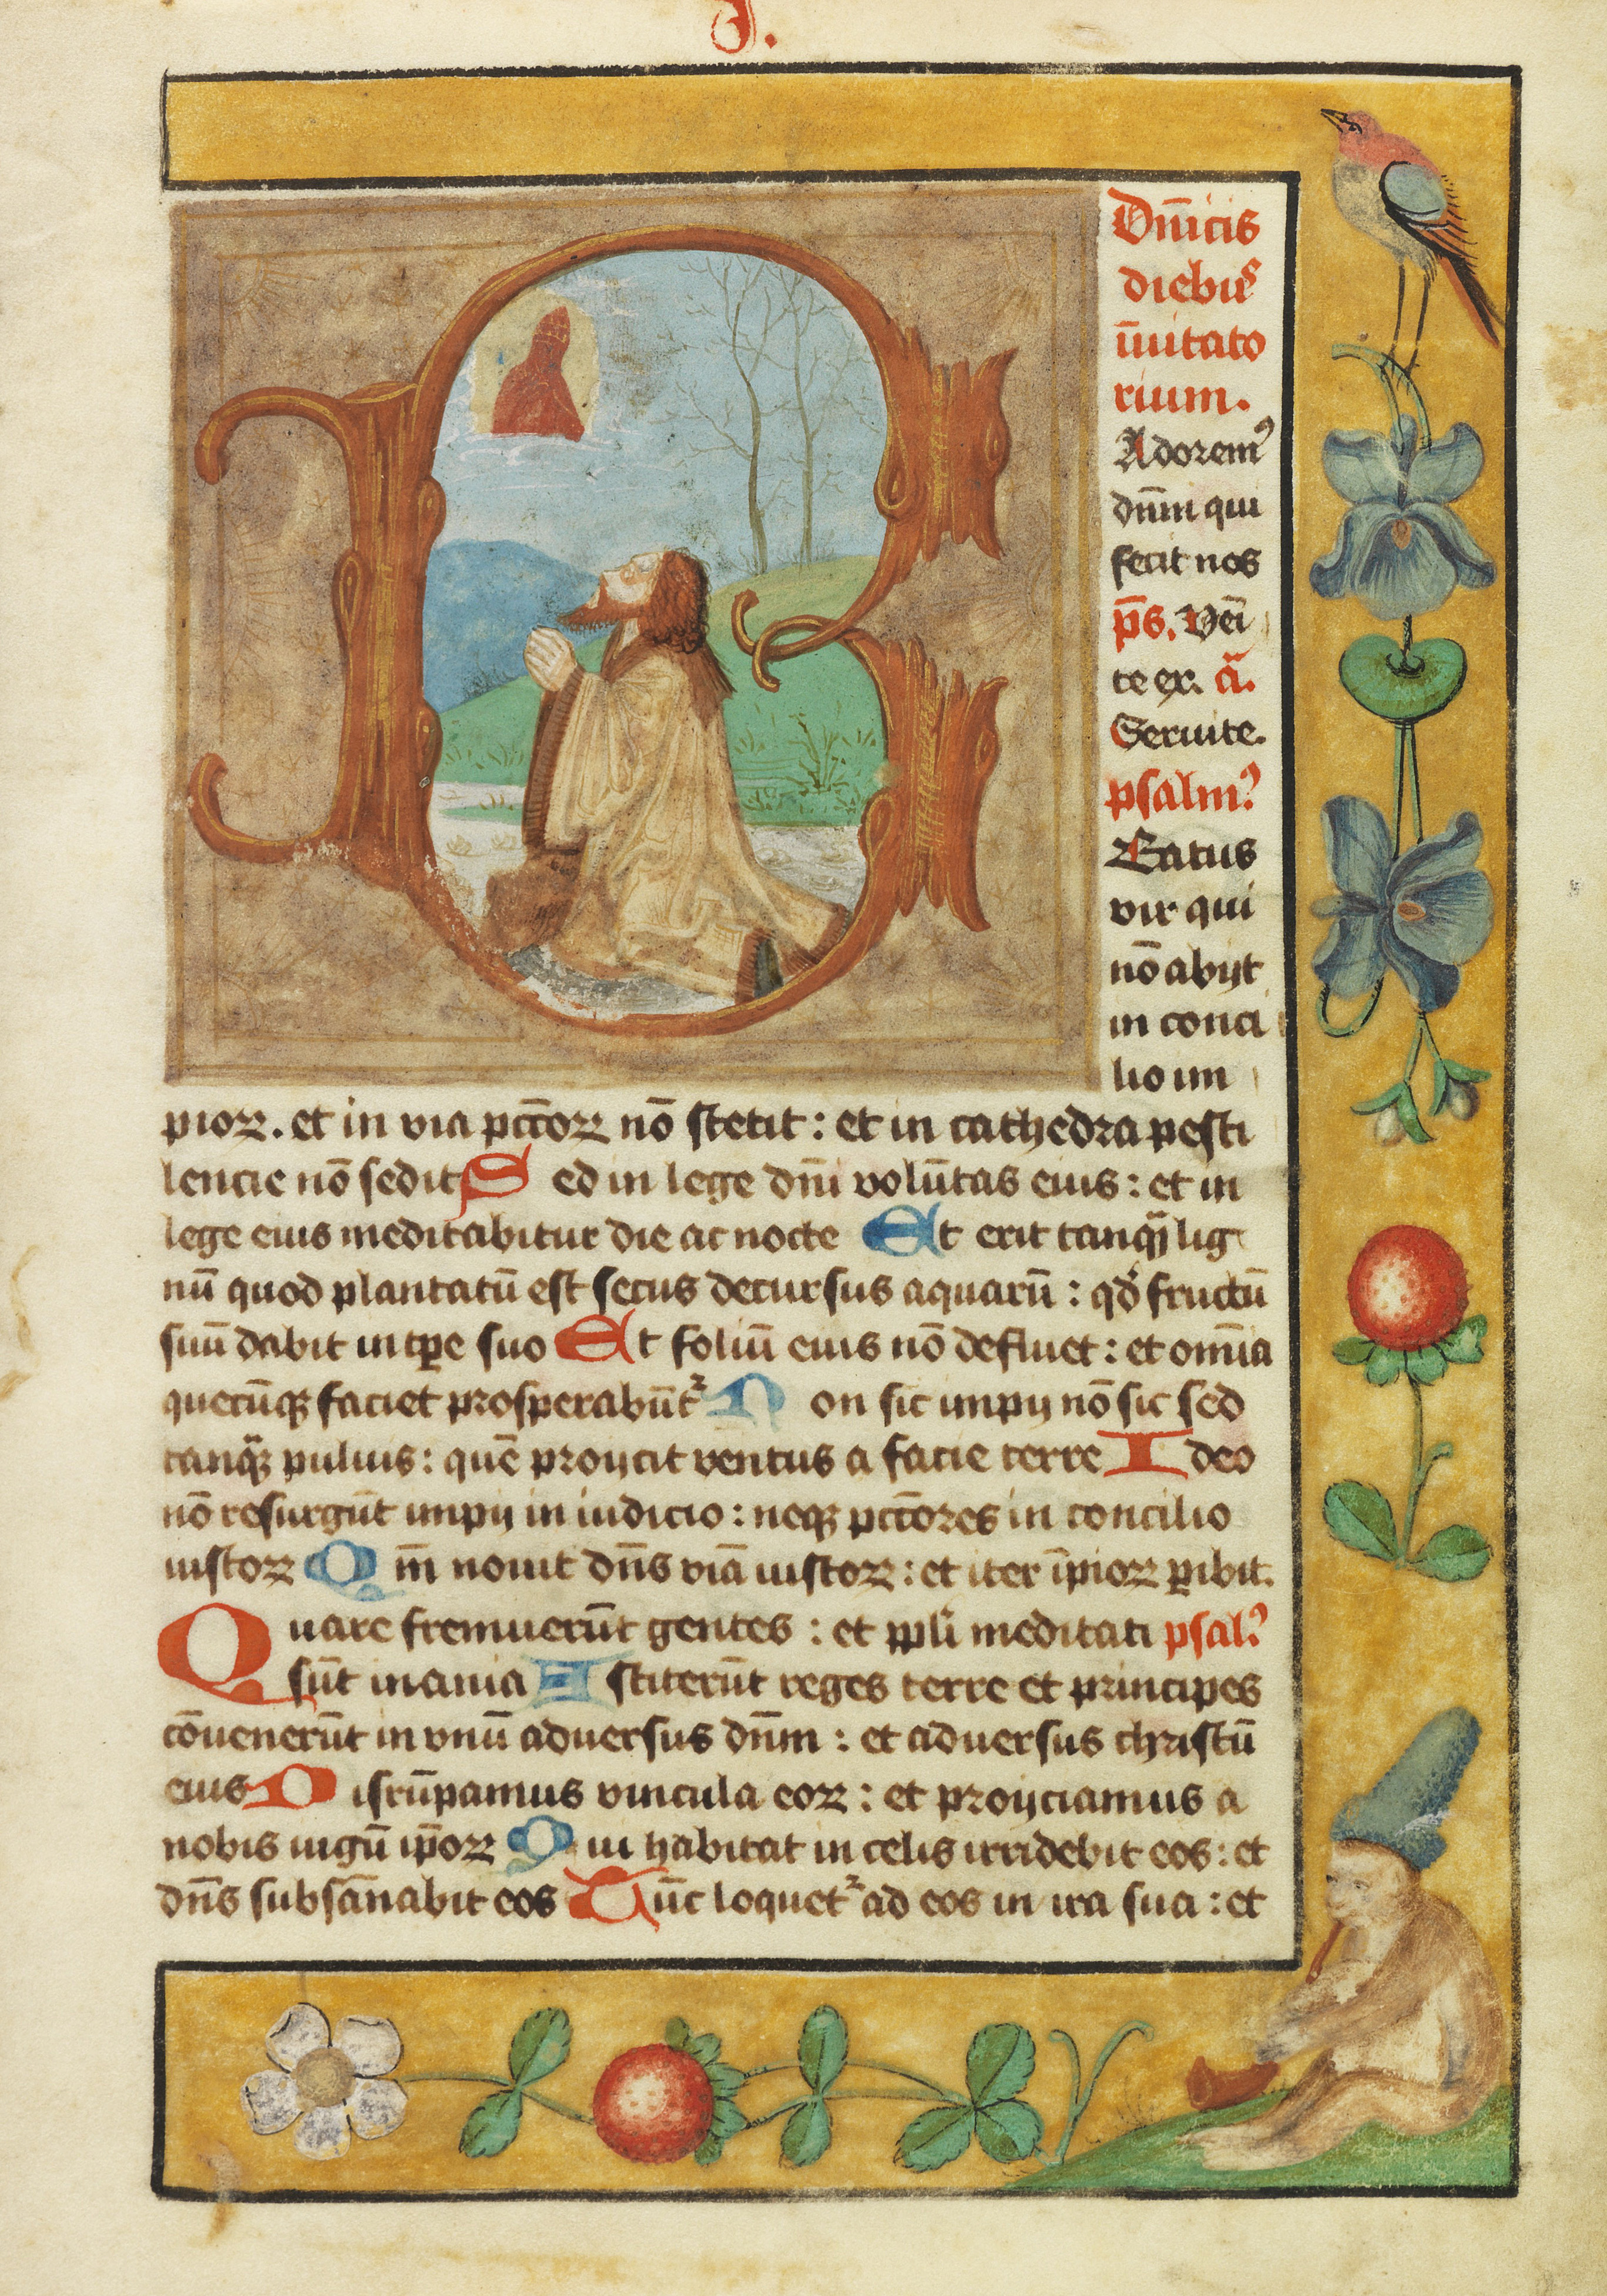 J.
Dn̄icis
diebus
īuitato
rium.
Adorem⁹
dn̄m qui
fecit nos
ps̄. Veni
te ex. ā.
Seruite.
psalm⁹
Beatus
vir qui
nō abijt
in conci
lio im
pioꝝ. et in via pc̄coꝝ nō stetit : et in cathedra pesti
lencie nō sedit Sed in lege dn̄i volūtas eius : et in
lege eius meditabitur die ac nocte Et erit tanqᷓ lig
nū quod plantatū est secus decursus aquarū : qd̛ fructū
suū dabit in tp̄e suo Et foliū eius nō defluet : et omīa
quecūqꝫ faciet prosperabūtᷣ Non sic impij nō sic sed
tanqᷓꝫ puluis : quē proijcit ventus a facie terre Ideo
nō resurgūt impij in iudicio : neqꝫ pc̄cores in concilio
iustoꝝ Qm̄ nouit dn̄s viā iustoꝝ : et iter īpioꝝ ꝑibit.
Quare fremuerūt gentes : et ppl̄i meditati psal⁹
sūt inania Astiterūt reges terre et principes
cōuenerūt in vnū aduersus dn̄m : et aduersus christū
eius Disrūpamus vincula eoꝝ : et proijciamus a
nobis iugū ip̄oꝝ Qui habitat in celis irridebit eos : et
dn̄s subsānabit eos Tūc loquetᷣ ad eos in ira sua : et